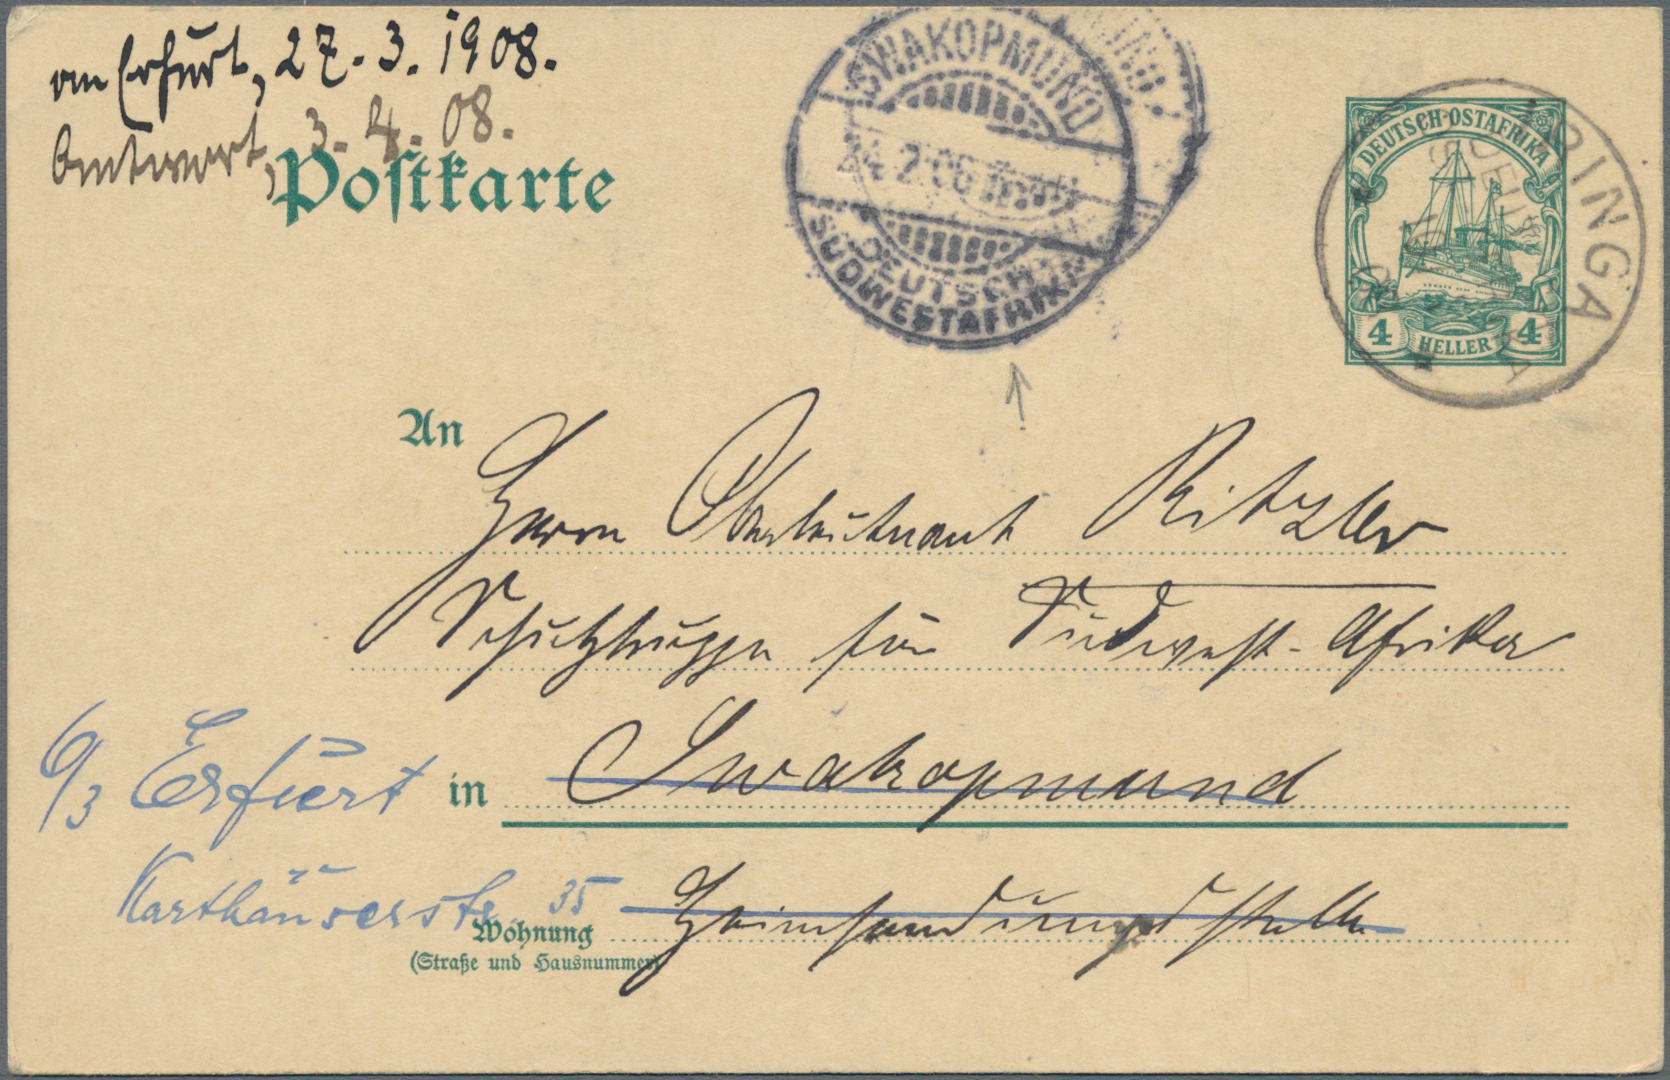 an Erfurt, 27.3.1908.
Antwort, 3.4.08.
Postkarte
SWAKOPMUND
24.2.08
DEUTSCH-
SÜDWESTAFRIKA
DEUTSCH-OSTAFRIKA
4 HELLER 4
IRINGA
An
Herrn Oberleutnant Ritzler
Schutztruppe für Südwest-Afrika
6/3 Erfurt in Swakopmund
Karthäuserstr 35
Heimsendungsstelle
Wohnung
(Straße und Hausnummer)